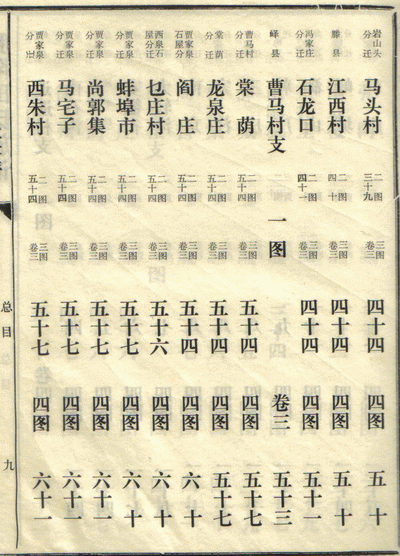 岩山头分迁 马头村 二图三十九 三图卷三 四十四 四图 五十
滕县 江西村 二图四十 三图卷三 四十四 四图 五十
冯家庄分迁 石龙口 二图四十一 三图卷三 四十四 四图 五十一
峄县 曹马村支 一图 卷三 五十三
曹马村分迁 棠荫 二图五十四 三图卷三 五十四 四图 五十七
棠荫分迁 龙泉庄 二图五十四 三图卷三 五十四 四图 五十七
贾家泉石屋分 阎庄 二图五十四 三图卷三 五十四 四图 六十
西泉石屋分迁 乜庄村 二图五十四 三图卷三 五十六 四图 六十
贾家泉分迁 蚌埠市 二图五十四 三图卷三 五十七 四图 六十
贾家泉分迁 尚郭集 二图五十四 三图卷三 五十七 四图 六十一
贾家泉分迁 马宅子 二图五十四 三图卷三 五十七 四图 六十一
贾家泉分迁 西朱村 二图五十四 三图卷三 五十七 四图 六十一
总目
九